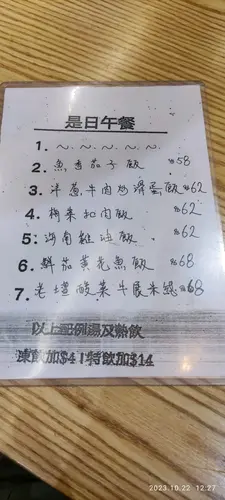 是日午餐
1. ~.~.~.~.~
2. 魚香茄子飯 $58
3. 洋蔥牛肉炒滑蛋飯 $62
4. 梅菜扣肉飯 $62
5. 海南雞油飯 $62
6. 鮮茄黃花魚飯 $68
7. 老壇酸菜牛展米線 $68
以上配例湯及熱飲
凍飲加$4！特飲加$14
2023.10.22 12:27